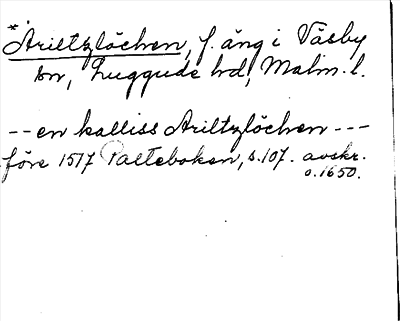 *Åriltzlöchen, f. äng i Väsby
sn, Luggude hd, Malm. l.
-- en kalliss Ariltzlöchen ---
före 1517 Palteboken, s. 107. avskr.
o. 1650.